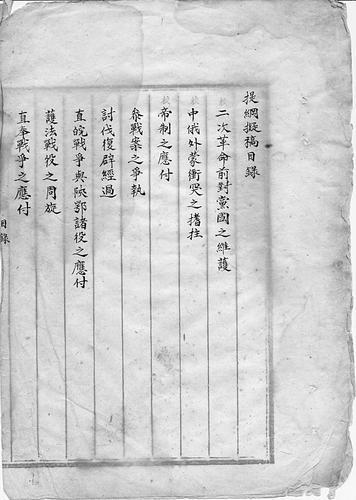 提綱擬稿目錄
二次革命前對黨國之維護
中俄外蒙衝突之搘拄
帝制之應付
參戰案之爭執
討伐復辟經過
直皖戰爭與陝鄂諸役之應付
護法戰役之周旋
直奉戰爭之應付
目錄